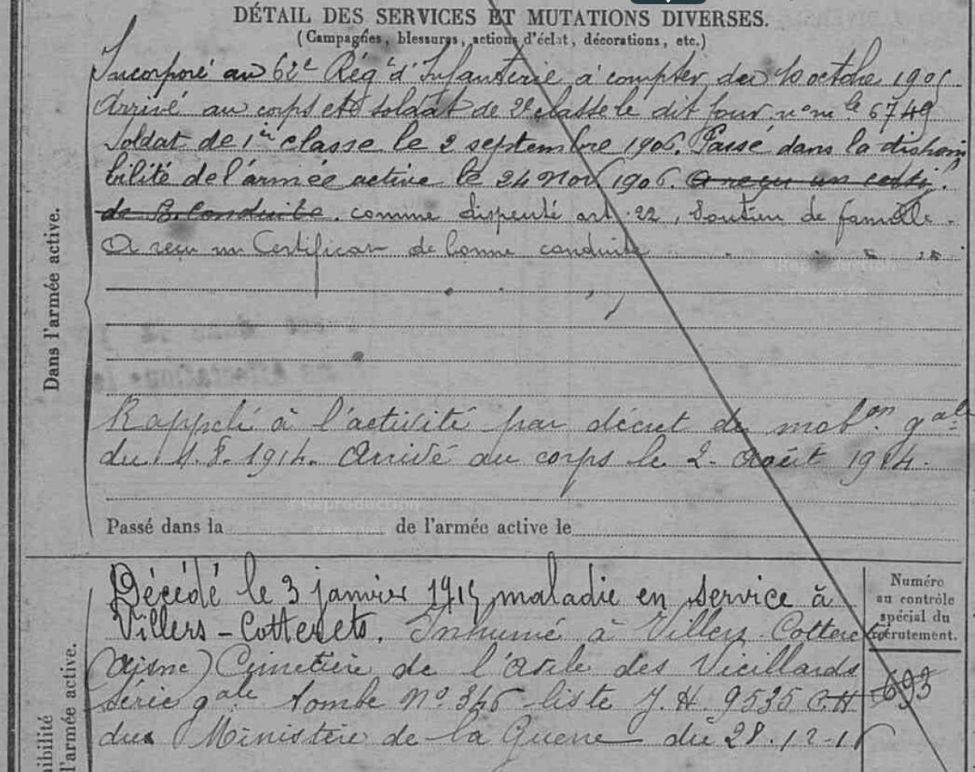 DÉTAIL DES SERVICES ET MUTATIONS DIVERSES.
(Campagnes, blessures, actions d'éclat, décorations, etc.)
Incorporé au 62e Régt d'Infanterie à compter du 10 octobre 1905
Arrivé au corps et soldat de 2e classe le dit jour. n° mle 6749
Soldat de 1re classe le 2 septembre 1906. Passé dans la disponi
bilité de l'armée active le 24 Nov 1906. A reçu un certi.
de B. Conduite. comme dispensé art. 22, Soutien de famille.
A reçu un Certificat de bonne conduite
Dans l'armée active.
Rappelé à l'activité par décret de mobon. gale
du 1.8.1914. Arrivé au corps le 2 Août 1914.
Passé dans la de l'armée active le
Décédé le 3 janvier 1915 maladie en service à
Villers-Cotterets. Inhumé à Villers Cotterets
(Aisne) Cimetière de l'Asile des Vieillards
série gale tombe N° 346 liste J. H. 9535
du Ministère de la Guerre du 28.12.1
Numéro
au contrôle
spécial du
recrutement.
693
nibilité
l'armée active.